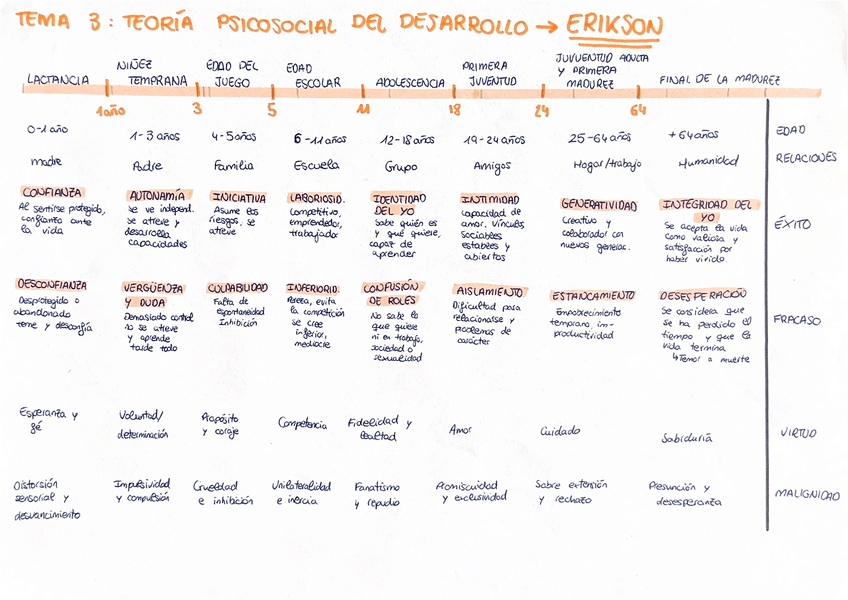 TEMA 3: TEORÍA PSICOSOCIAL DEL DESARROLLO → ERIKSON
LACTANCIA
NIÑEZ
TEMPRANA
EDAD DEL
JUEGO
EDAD
ESCOLAR
ADOLESCENCIA
PRIMERA
JUVENTUD
JUVUENTUD ADULTA
Y PRIMERA
MADUREZ
FINAL DE LA MADUREZ
1año 3 5 11 18 24 64
0-1 año
1-3 años
4-5años
6-11años
12-18años
19-24años
25-64años
+64años
EDAD
madre
Padre
Familia
Escuela
Grupo
Amigos
Hogar/trabajo
Humanidad
RELACIONES
CONFIANZA
Al sentirse protegido,
confianza ante
la vida
AUTONOMÍA
se ve independ.
se atreve y
desarrolla
capacidades
INICIATIVA
Asume los
riesgos, se
atreve
LABORIOSID.
Competitivo,
emprendedor,
trabajador
IDENTIDAD
DEL YO
Sabe quién es
y qué quiere,
capaz de
aprender
INTIMIDAD
capacidad de
amar, vínculos
sociables
estables y
abiertos
GENERATIVIDAD
Creativo y
colaborador con
nuevos generac.
INTEGRIDAD DEL
YO
Se acepta la vida
como valiosa y
satisfacción por
haber vivido.
ÉXITO
DESCONFIANZA
Desprotegido o
abandonado
teme y desconfía
VERGÜENZA
Y DUDA
Demasiado control
no se atreve
y aprende
tarde todo
CULPABILIDAD
Falta de
espontaneidad
Inhibición
INFERIORID.
Pereza, evita
la competición
se cree
inferior,
mediocre
CONFUSIÓN
DE ROLES
No sabe lo
que quiere
ni en trabajo,
sociedad o
sexualidad
AISLAMIENTO
Dificultad para
relacionarse y
problemas de
carácter
ESTANCAMIENTO
Empobrecimiento
temprano, im-
productividad
DESESPERACIÓN
Se considera que
se ha perdido el
tiempo y que la
vida termina
↳Temor a muerte
FRACASO
Esperanza y
fé
Voluntad/
determinación
Propósito
y coraje
Competencia
Fidelidad y
lealtad
Amor
Cuidado
Sabiduría
VIRTUD
Distorsión
sensorial y
desvancimiento
Impulsividad
y compulsión
Crueldad
e inhibición
Unilateralidad
e inercia
Fanatismo
y repudio
Promiscuidad
y exclusividad
Sobre extensión
y rechazo
Presunción y
desesperanza
MALIGNIDAD